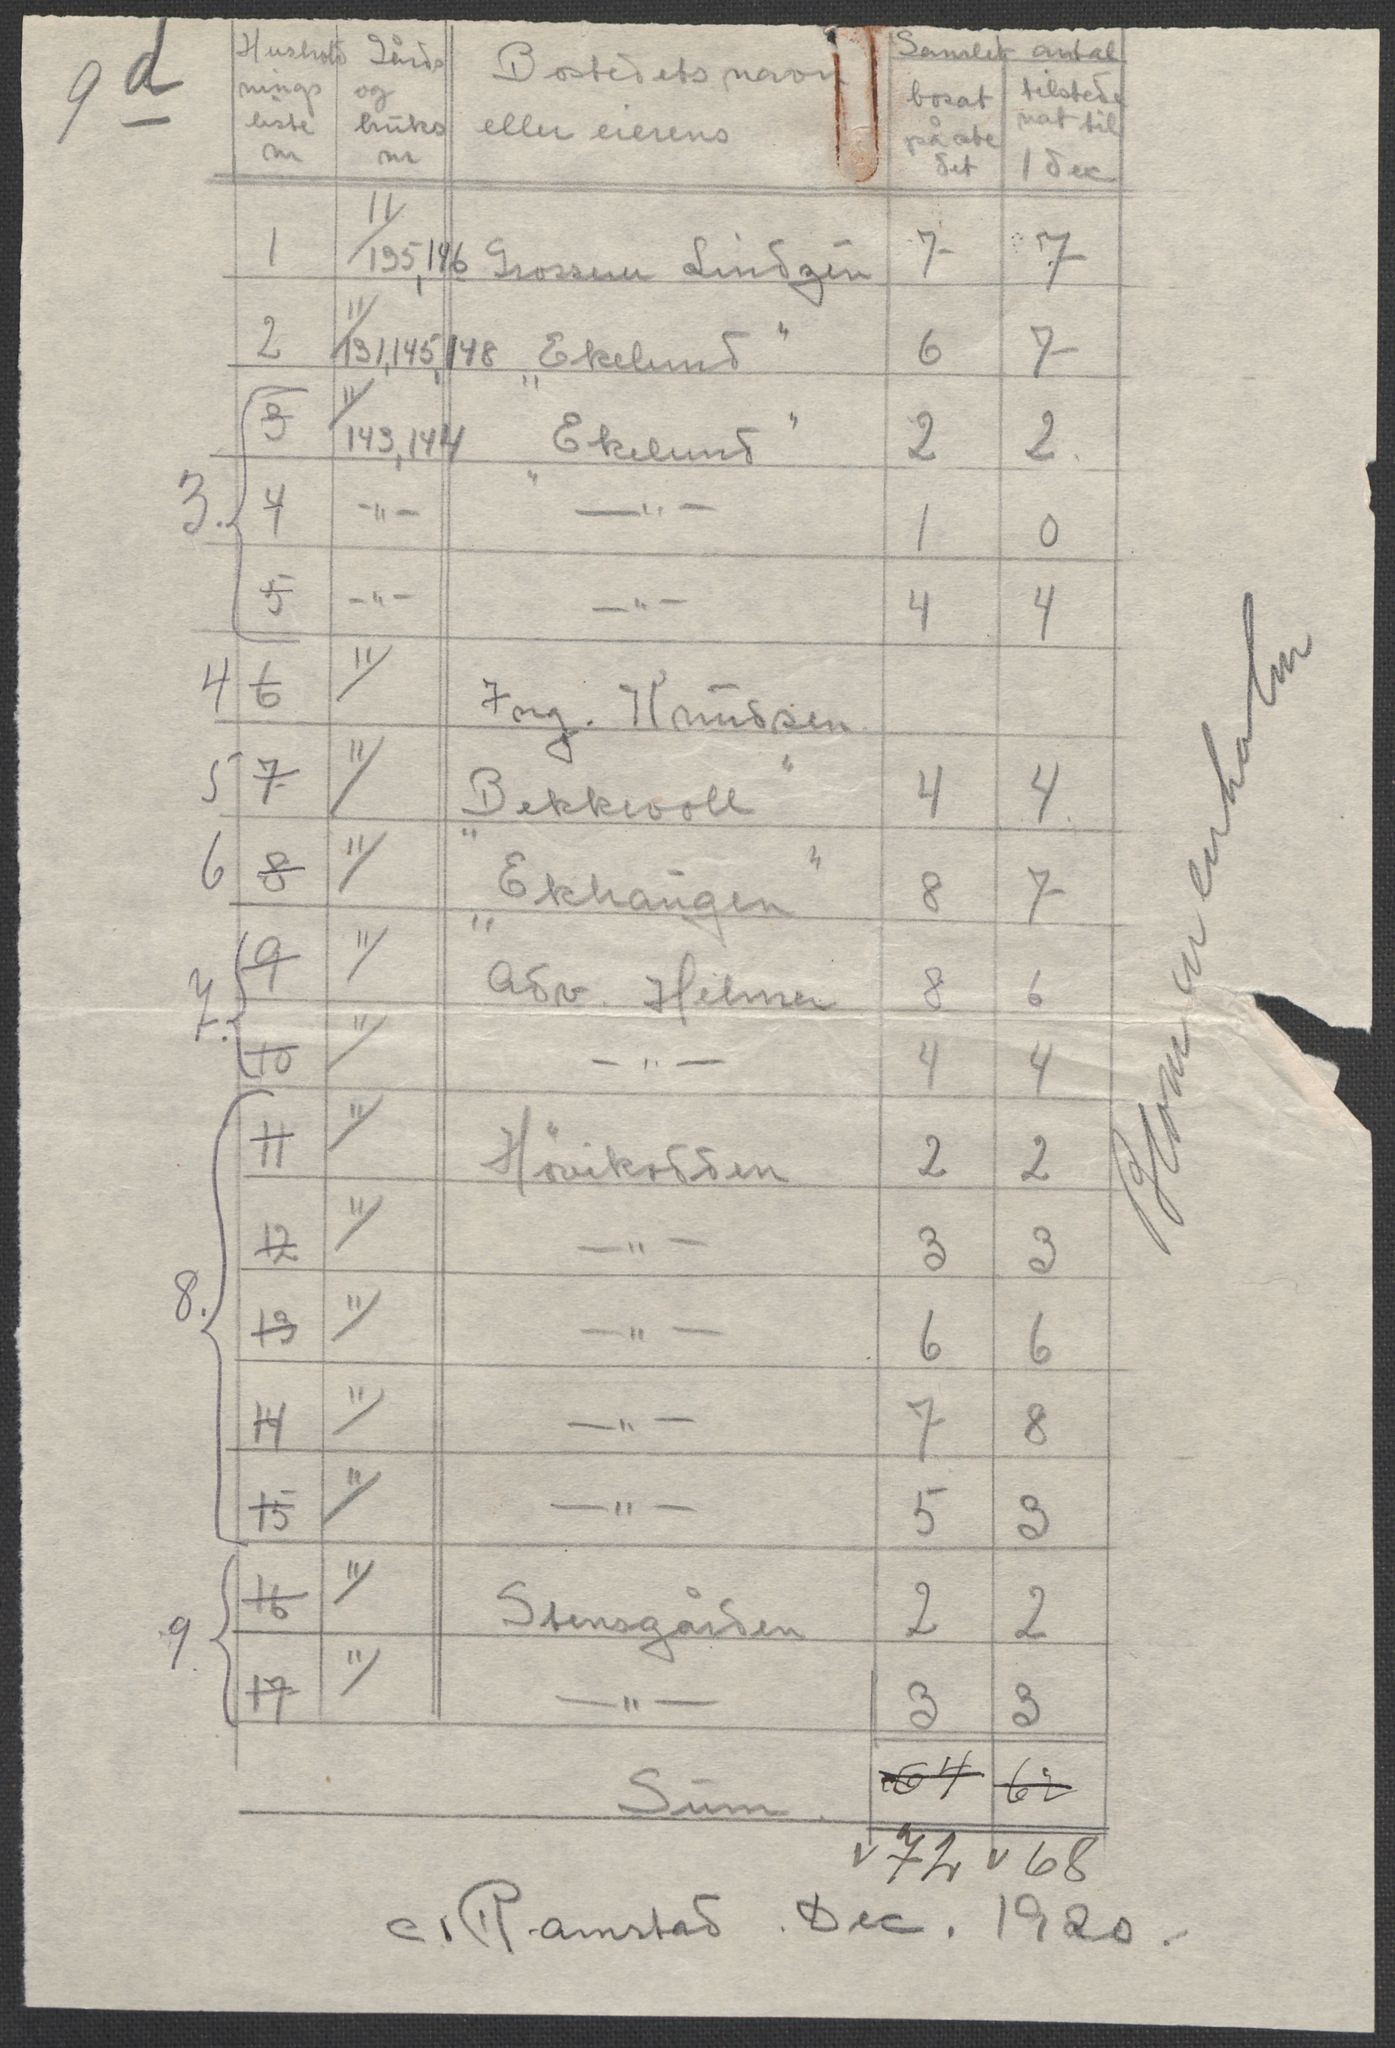 9 d
Husholdnings liste nr | Gårds og bruks nr | Bostedets navn eller eierens | Samlet antal
bosat på ste det | tilstede nat til 1 dec
1 | 11/135,146 | Grosserer Lindzén | 7 | 7
2 | 11/131,145,148 | "Ekelund" | 6 | 7
3. 3 | 11/143,144 | "Ekelund" | 2 | 2
4 | -"- | -"- | 1 | 0
5 | -"- | -"- | 4 | 4
4 6 | 11/ | Ing. Knudsen
5 7 | 11/ | "Bekkevoll" | 4 | 4
6 8 | 11/ | "Ekhaugen" | 8 | 7
7. 9 | 11/ | Adv. Heimer | 8 | 6
10 | 11/ | -"- | 4 | 4
8. 11 | 11/ | Hövikodden | 2 | 2
12 | 11/ | -"- | 3 | 3
13 | 11/ | -"- | 6 | 6
14 | 11/ | -"- | 7 | 8
15 | 11/ | -"- | 5 | 3
9. 16 | 11/ | Stensgården | 2 | 2
17 | 11/ | -"- | 3 | 3
Sum. | 64 | 62
v 72 v 68
C. Ramstad. Dec. 1920.
Blommenholm